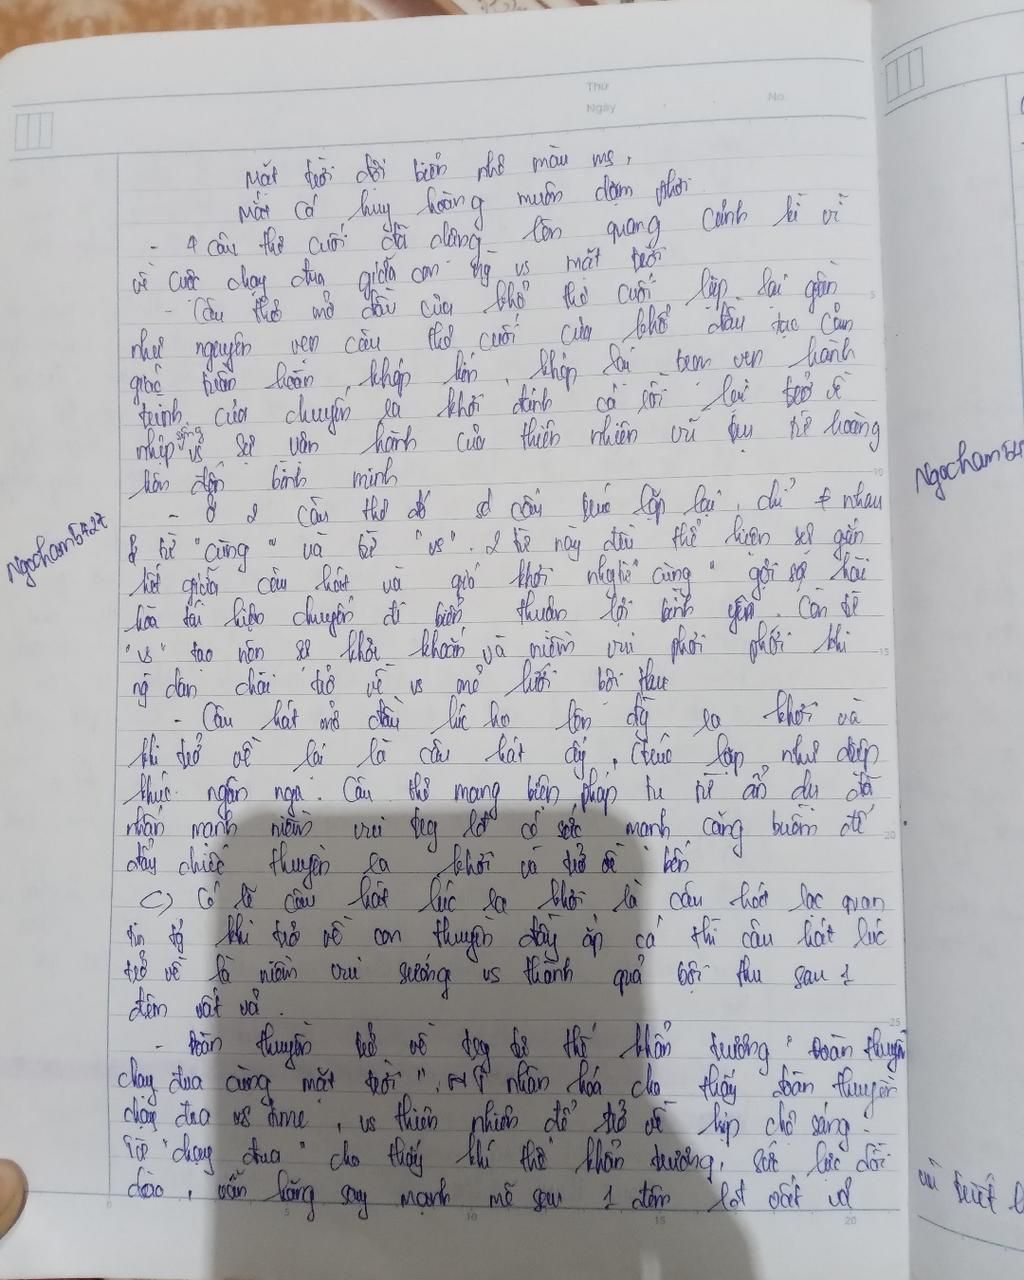 Thứ
Ngày
No.
Mặt trời đội biển nhô màu mới,
Mắt cá huy hoàng muôn dặm phơi
- 4 câu thơ cuối đã dựng lên quang cảnh kì vĩ
về cuộc chạy đua giữa con ng vs mặt trời
- Câu thơ mở đầu của khổ thơ cuối lặp lại gần
như nguyên vẹn câu thơ cuối của khổ đầu tạo cảm
giác tuần hoàn, khép kín, khép lại trọn vẹn hành
trình của chuyến ra khơi đánh cá rồi lại trở về
nhịp sống vs sự vận hành của thiên nhiên vũ trụ từ hoàng
hôn đến bình minh
- Ở 2 câu thơ đó sd cấu trúc lặp lại, chỉ ≠ nhau
ở từ "cùng" và từ "vs". 2 từ này đều thể hiện sự gắn
kết giữa câu hát và gió khơi "cùng" gợi sự hài
hòa tái hiện chuyến đi biển thuận lợi bình yên. Còn từ
"vs" tạo nên sự khỏe khoắn và niềm vui phơi phới khi
ng dân chài trở về vs mẻ lưới bội thu
- Câu hát mở đầu lúc họ lên đg ra khơi và
khi trở về lại là câu hát ấy, cấu trúc lặp như điệp
khúc ngân nga. Câu thơ mang biện pháp tu từ ẩn dụ đã
nhấn mạnh niềm vui có sức mạnh căng buồm để
đẩy chiếc thuyền ra khơi và trở về bến
C) Có lẽ câu hát lúc ra khơi là câu hát lạc quan
tin tg khi trở về con thuyền đầy ắp cá thì câu hát lúc
trở về là niềm vui sướng vs thành quả bội thu sau 1
đêm vất vả.
- Đoàn thuyền trở về trg tư thế khẩn trương "Đoàn thuyền
chạy đua cùng mặt trời", NT nhân hoá cho thấy đoàn thuyền
chạy đua vs time, vs thiên nhiên để trở về kịp chợ sáng.
Từ "chạy đua" cho thấy khí thế khẩn trương, sức lực dồi
dào, vẫn hăng say mạnh mẽ sau 1 đêm vất vả
Ngocham5427
Ngocham54